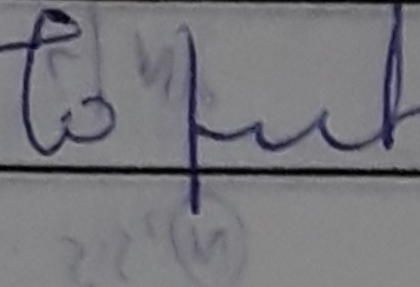 to put